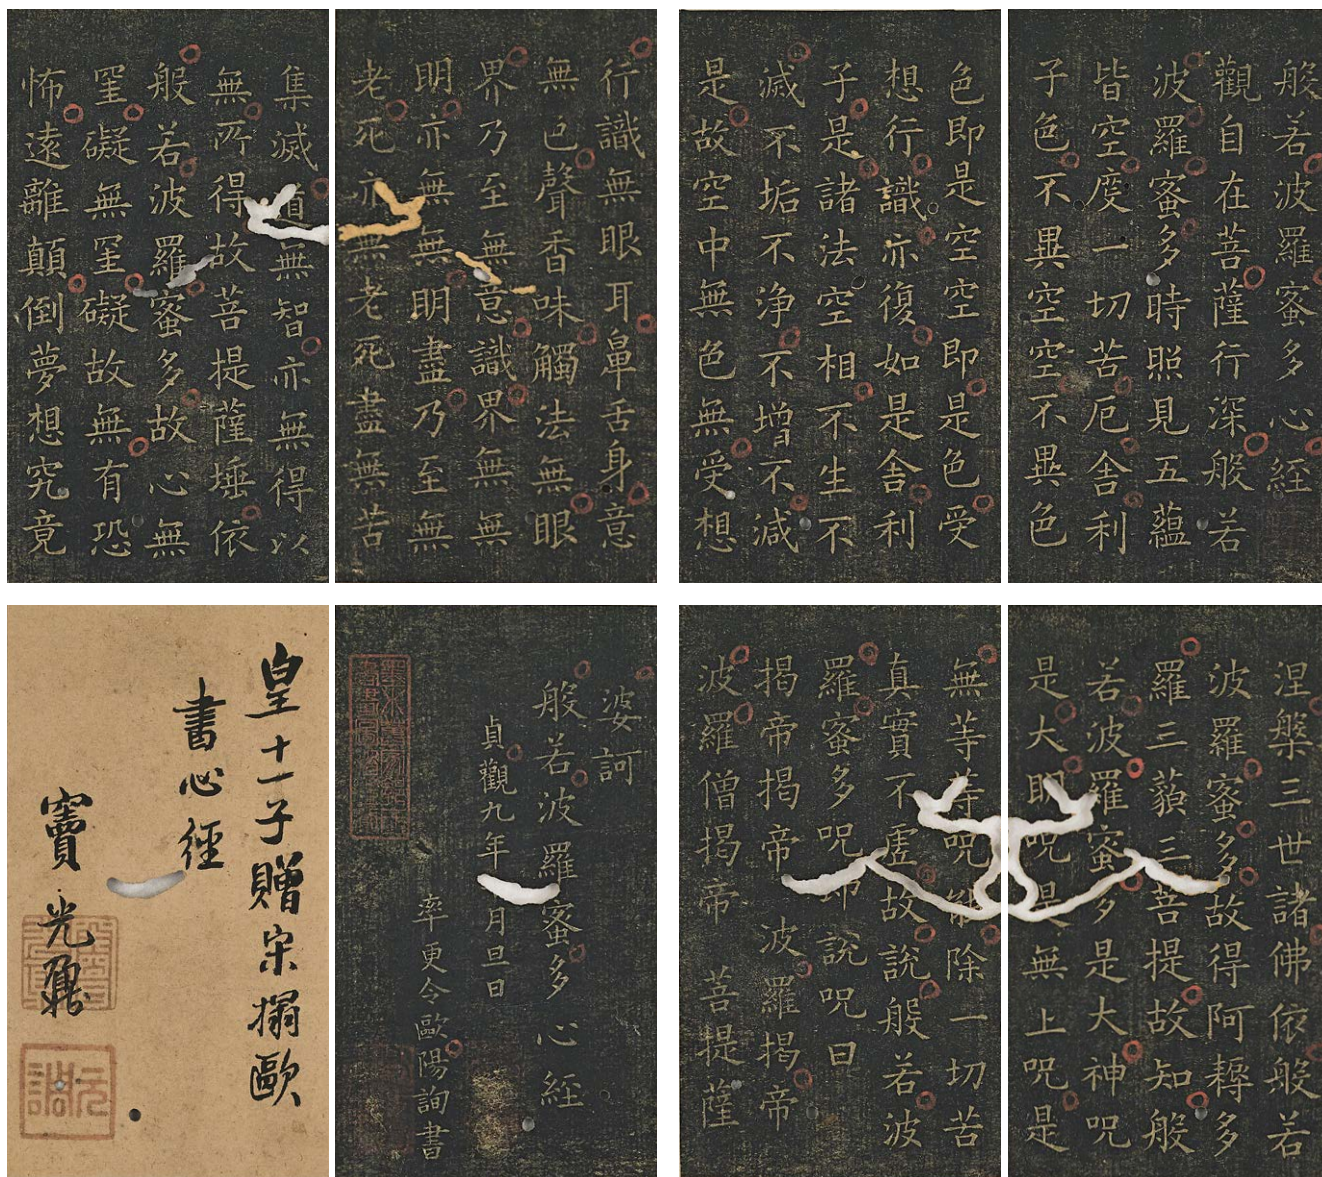 般若波羅蜜多心經
觀自在菩薩行深般若
波羅蜜多時照見五蘊
皆空度一切苦厄舍利
子色不異空空不異色
色即是空空即是色受
想行識亦復如是舍利
子是諸法空相不生不
滅不垢不淨不增不減
是故空中無色無受想
行識無眼耳鼻舌身意
無色聲香味觸法無眼
界乃至無意識界無無
明亦無無明盡乃至無
老死亦無老死盡無苦
集滅道無智亦無得以
無所得故菩提薩埵依
般若波羅蜜多故心無
罣礙無罣礙故無有恐
怖遠離顛倒夢想究竟
涅槃三世諸佛依般若
波羅蜜多故得阿耨多
羅三藐三菩提故知般
若波羅蜜多是大神咒
是大明咒是無上咒是
無等等咒能除一切苦
真實不虛故說般若波
羅蜜多咒即說咒曰
揭帝揭帝 波羅揭帝
波羅僧揭帝 菩提薩
婆訶
般若波羅蜜多心經
貞觀九年月旦日
率更令歐陽詢書
皇十一子贈宋搨歐
書心經
竇光鼐